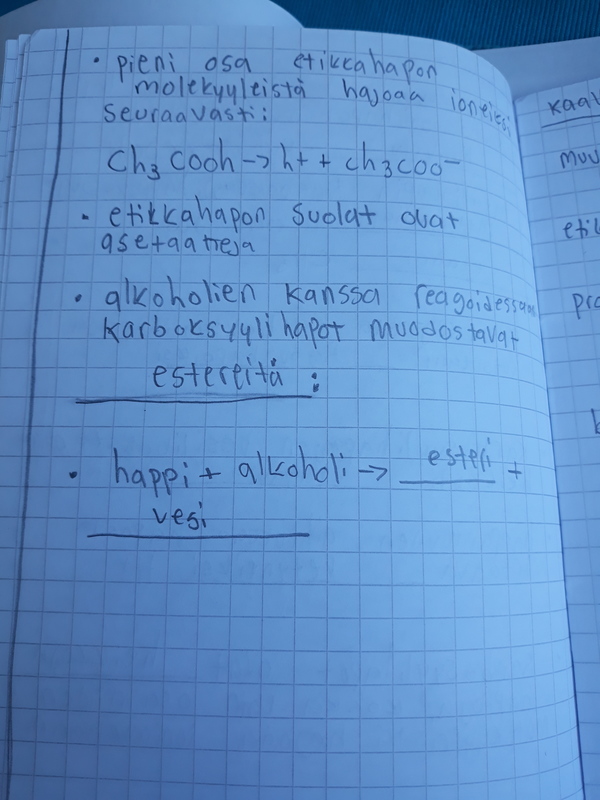 • pieni osa etikkahapon
molekyyleistä hajoaa ioneiksi
seuraavasti:
Ch₃Cooh → h+ + ch₃coo⁻
• etikkahapon suolat ovat
asetaatteja
• alkoholien kanssa reagoidessaan
karboksyylihapot muodostavat
estereitä :
• happi + alkoholi → esteri +
vesi
kaal
muu
etik
pro